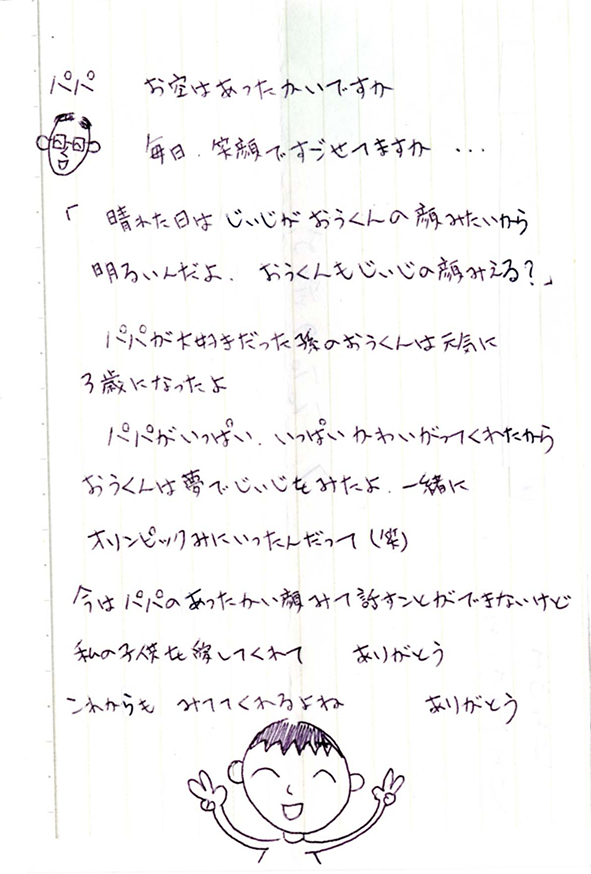 パパ　お空はあったかいですか
毎日、笑顔ですごせてますか ...
「晴れた日は じぃじが おうくんの顔みたいから
明るいんだよ、おうくんもじぃじの顔みえる?」
パパが大好きだった孫のおうくんは元気に
3歳になったよ
パパがいっぱい、いっぱいかわいがってくれたから
おうくんは夢でじぃじをみたよ、一緒に
オリンピックみにいったんだって(笑)
今はパパのあったかい顔みて話すことができないけど
私の子供を愛してくれて　ありがとう
これからも みててくれるよね　ありがとう